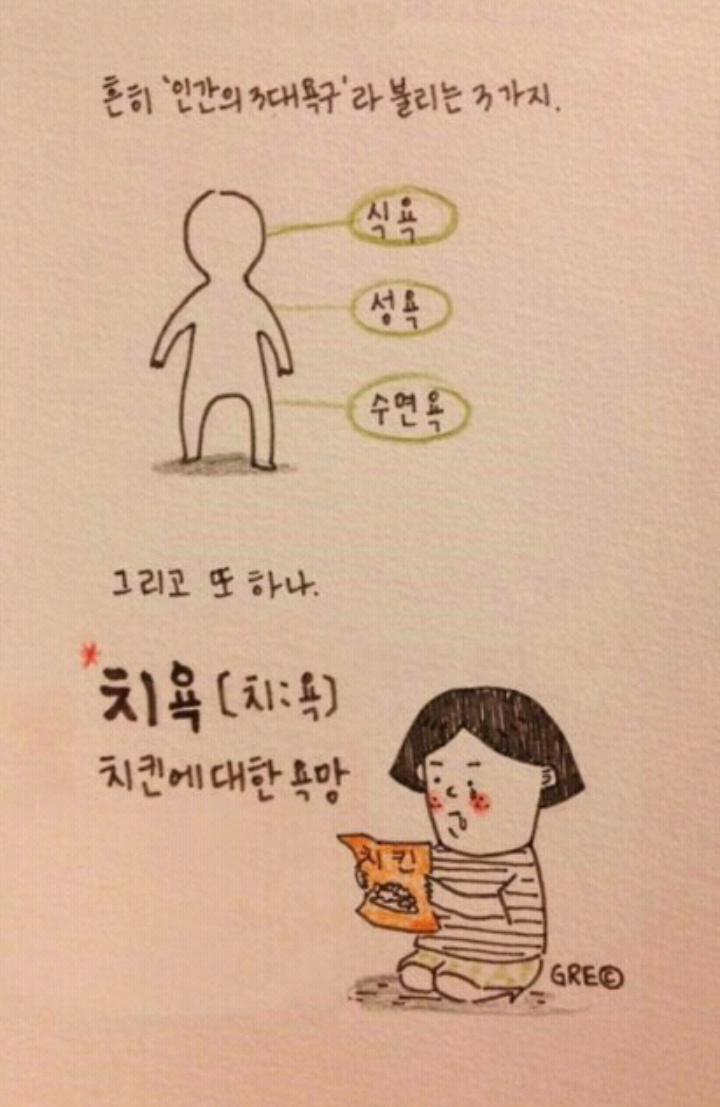 흔히 '인간의 3대욕구'라 불리는 3가지.
식욕
성욕
수면욕
그리고 또 하나.
*치욕 [치:욕]
치킨에 대한 욕망
치킨
GRE©